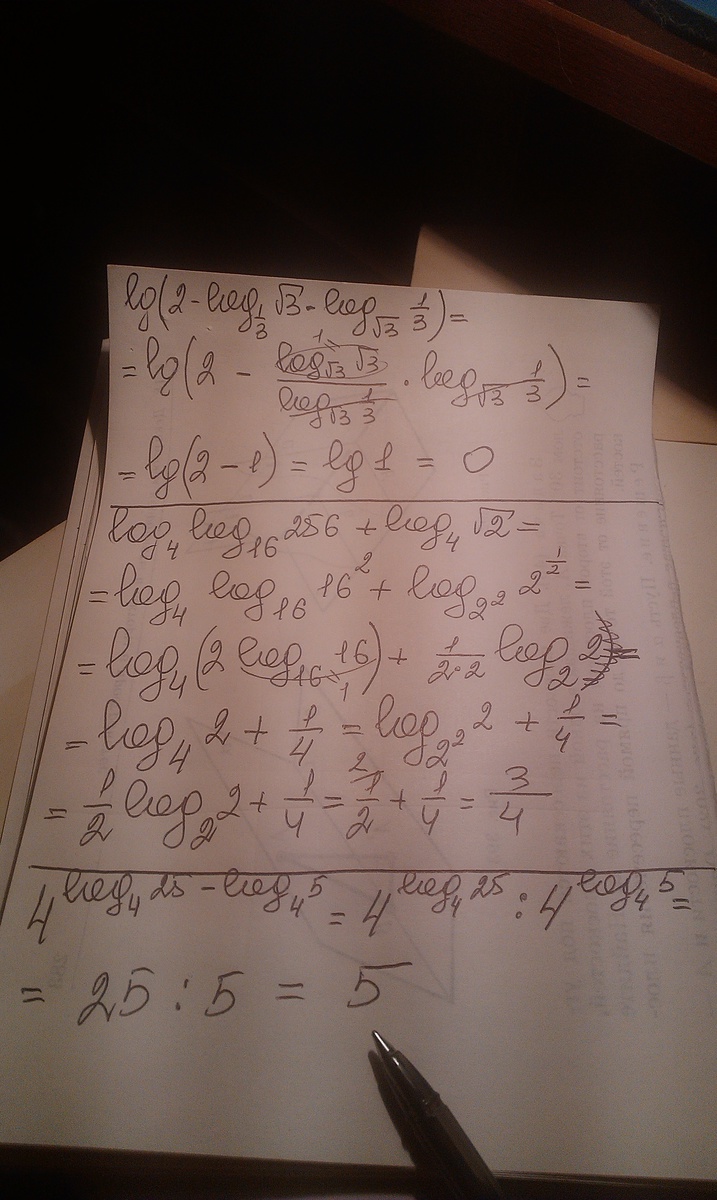 lg(2 - log_{1/3} √3 · log_{√3} 1/3) =
= lg(2 - (log_{√3} √3)/(log_{√3} 1/3) · log_{√3} 1/3) =
= lg(2 - 1) = lg 1 = 0
log_4 log_16 256 + log_4 √2 =
= log_4 log_16 16^2 + log_{2^2} 2^{1/2} =
= log_4 (2 log_16 16) + 1/(2·2) log_2 2 =
= log_4 2 + 1/4 = log_{2^2} 2 + 1/4 =
= 1/2 log_2 2 + 1/4 = 1/2 + 1/4 = 3/4
4^{log_4 25 - log_4 5} = 4^{log_4 25} : 4^{log_4 5} =
= 25 : 5 = 5